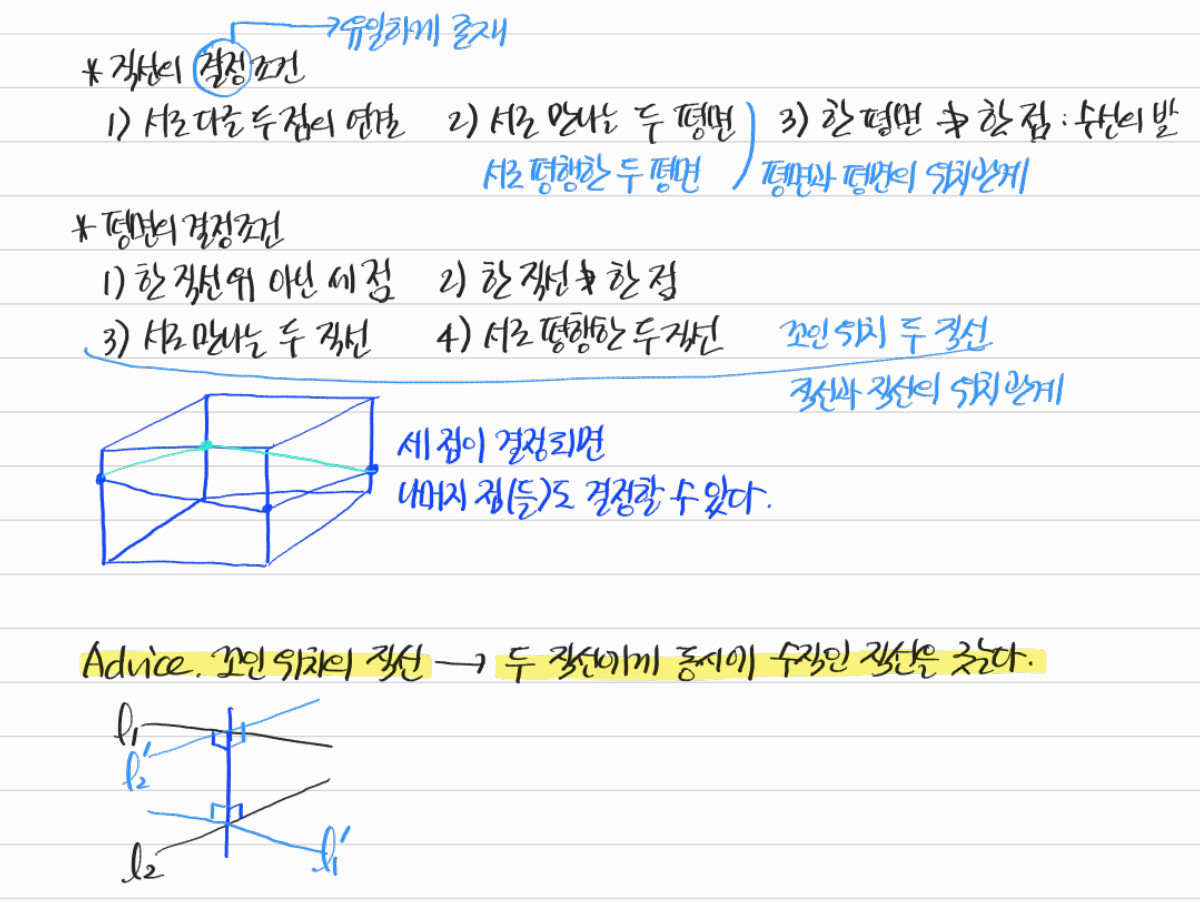 →유일하게 존재
* 직선의 결정조건
1) 서로 다른 두 점의 연결 2) 서로 만나는 두 평면 3) 한 평면 ∌ 한 점 : 수선의 발
서로 평행한 두 평면 평면과 평면의 위치관계
* 평면의 결정조건
1) 한 직선위 아닌 세 점 2) 한 직선 ∌ 한 점
3) 서로 만나는 두 직선 4) 서로 평행한 두 직선 꼬인 위치 두 직선
직선과 직선의 위치관계
세 점이 결정되면
나머지 점(들)도 결정할 수 있다.
Advice. 꼬인 위치의 직선 → 두 직선에게 동시에 수직인 직선을 긋는다.
l₁
l₂′
l₂ l₁′